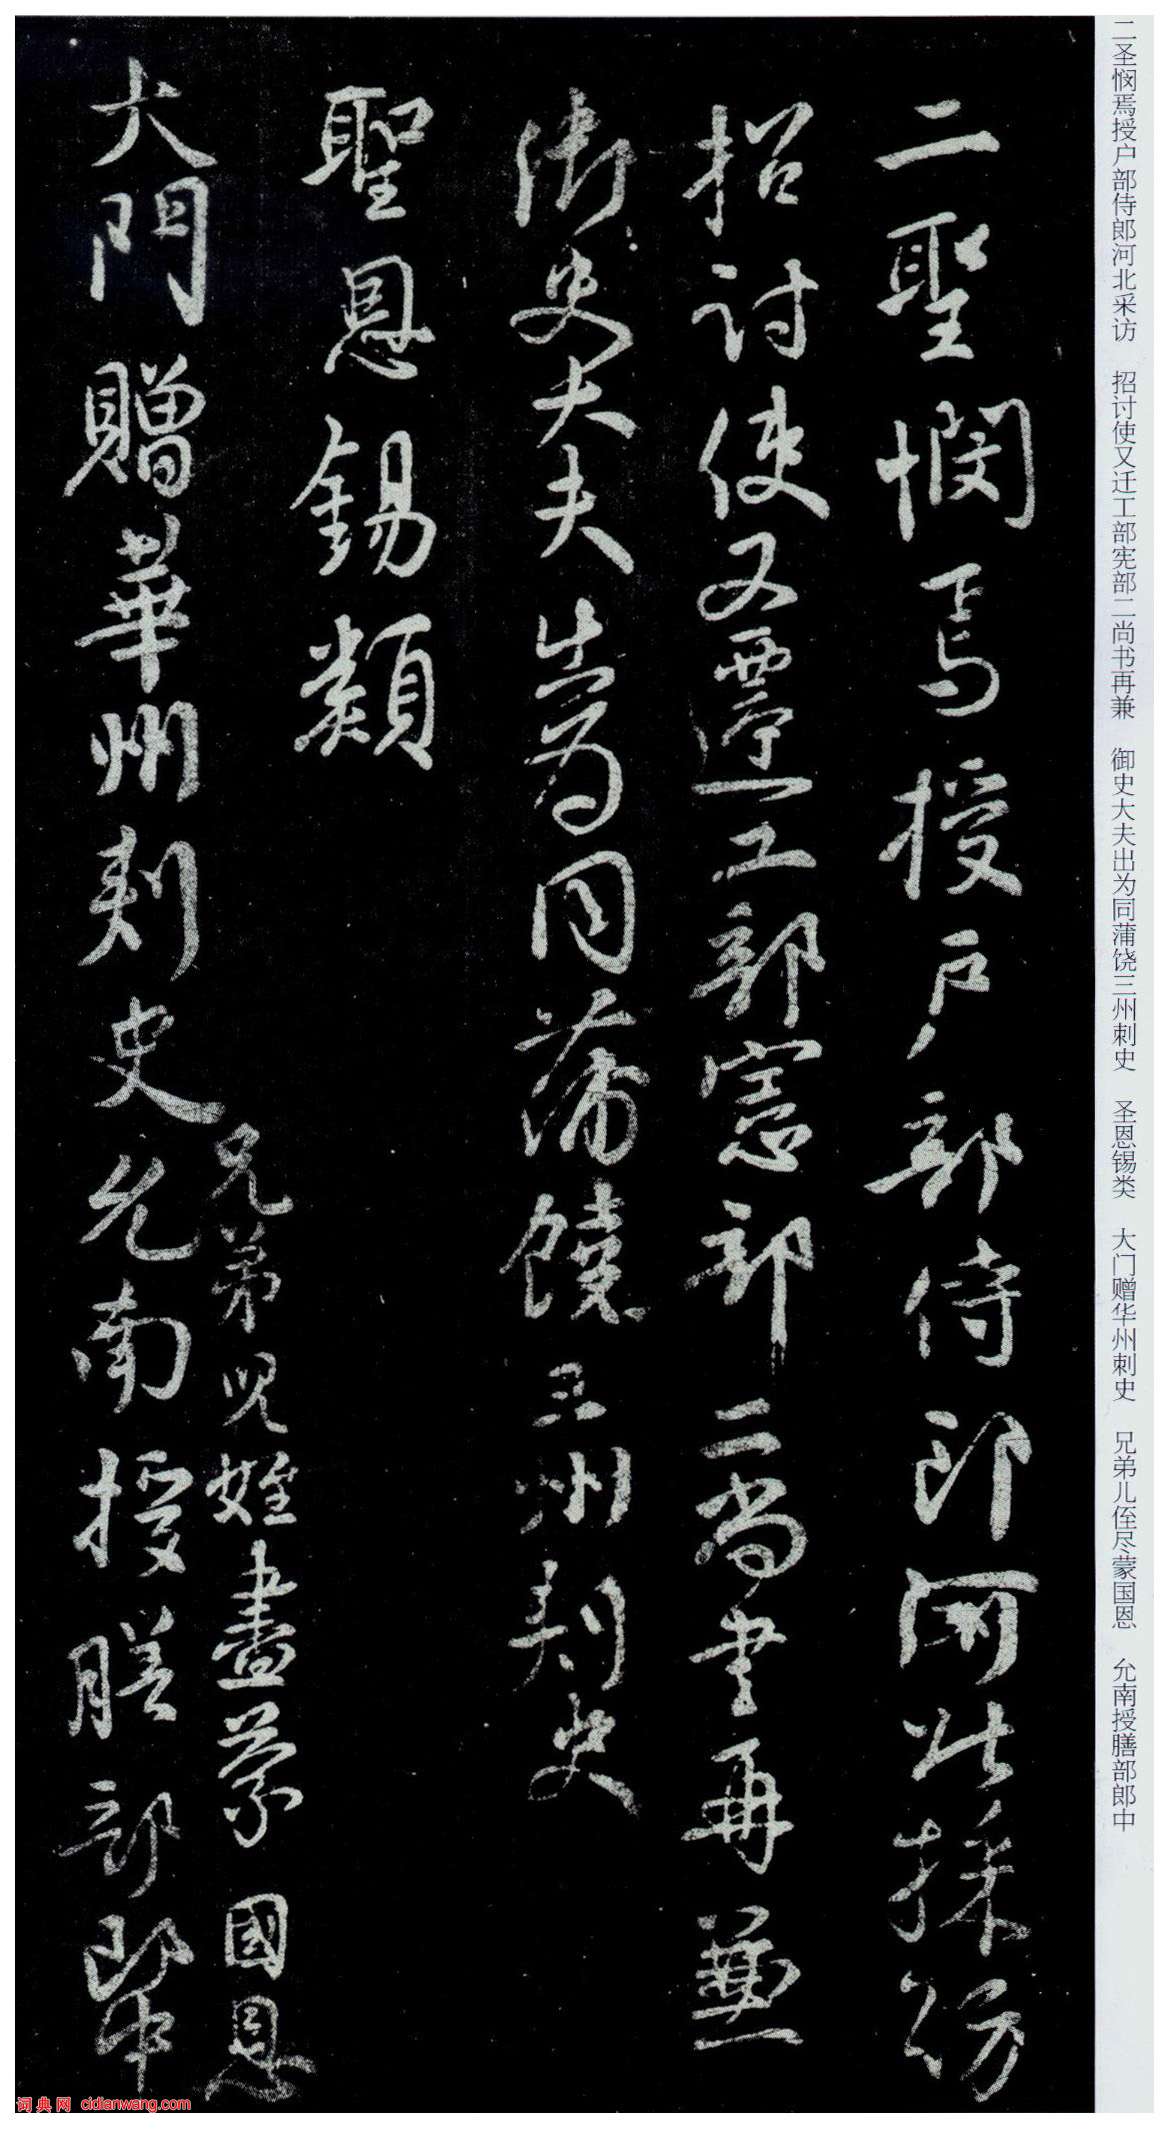 二聖憫焉授户部侍郎河北採訪
招討使又遷工部憲部二尚書再兼
御史大夫出為同蒲饒三州刺史
聖恩錫類
兄弟兒姪盡蒙國恩
大門贈華州刺史允南授膳部郎中
二圣悯焉授户部侍郎河北采访 招讨使又迁工部宪部二尚书再兼 御史大夫出为同蒲饶三州刺史 圣恩锡类 大门赠华州刺史 兄弟儿侄尽蒙国恩 允南授膳部郎中
词典网 cidianwang.com